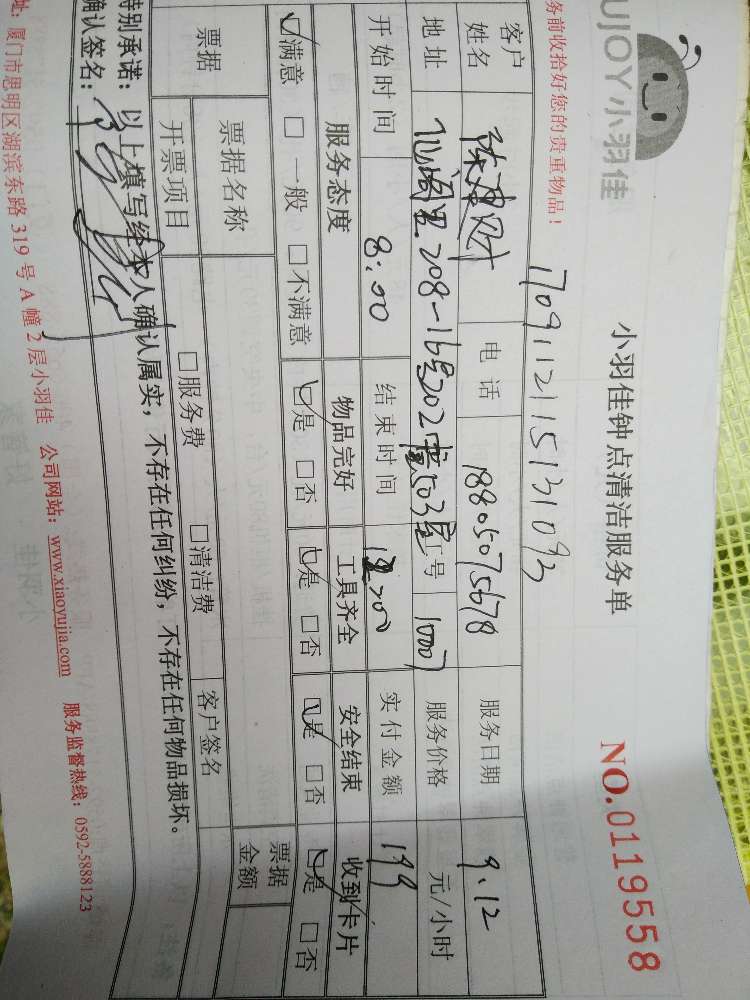 UJOY小羽佳
小羽佳钟点清洁服务单
NO.0119558
务前收拾好您的贵重物品！
1709112115131093
客户姓名 电话 18805075678 服务日期 9.12
地址 工号 1007 服务价格 元/小时
开始时间 8:00 结束时间 实付金额 199
服务态度 物品完好 工具齐全 安全结束 收到卡片
☑满意 □一般 □不满意 ☑是 □否 ☑是 □否 ☑是 □否 ☑是 □否
票据 票据名称 票据金额
开票项目 □服务费 □清洁费 客户签名
特别承诺：以上填写经本人确认属实，不存在任何纠纷，不存在任何物品损坏。
确认签名：
址：厦门市思明区湖滨东路 319 号 A 幢 2 层小羽佳 公司网站：www.xiaoyujia.com 服务监督热线：0592-5888123